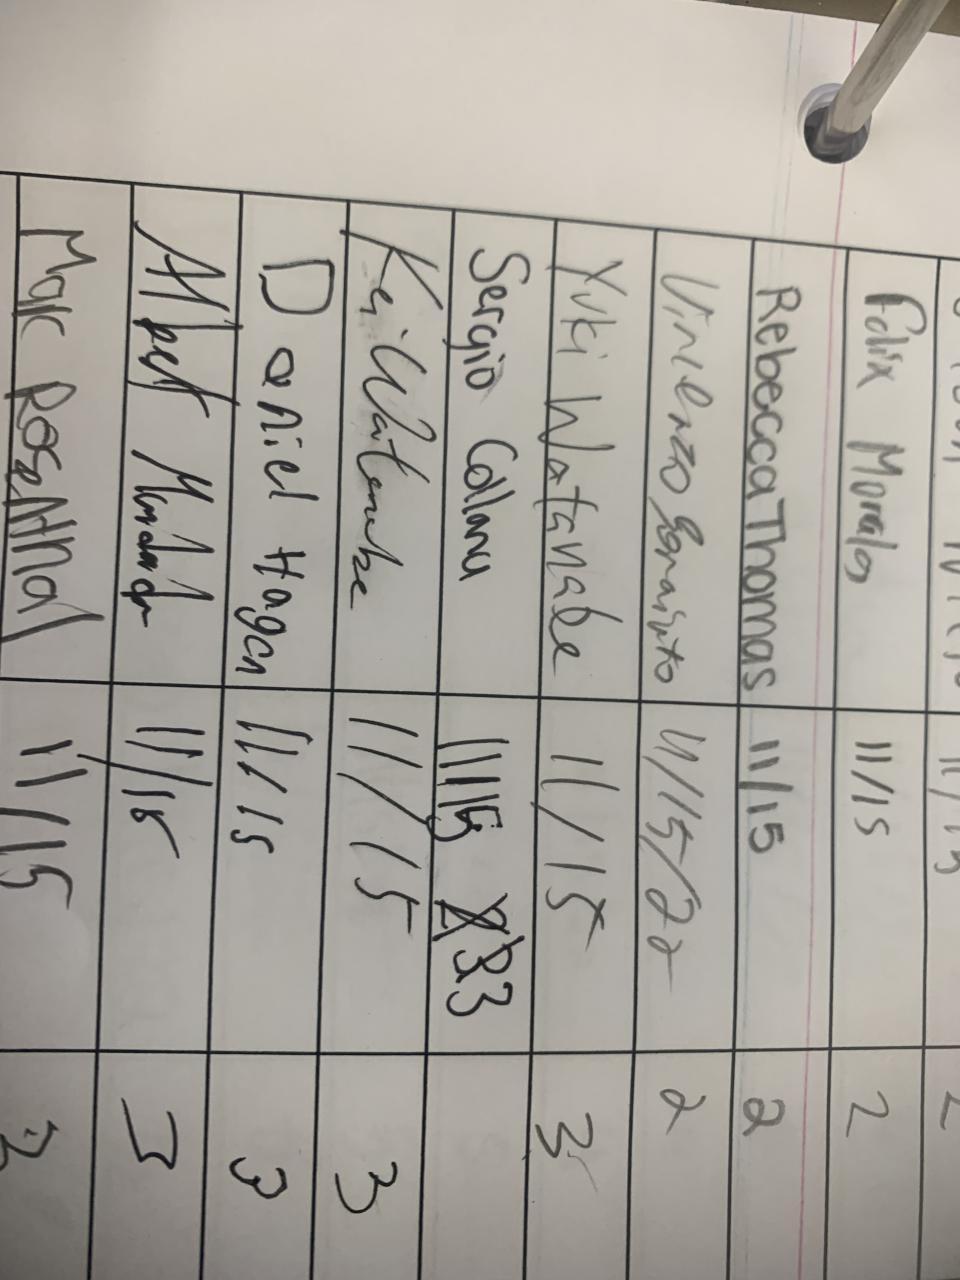 11/15 2
Felix Morales 11/15 2
Rebecca Thomas 11/15 2
Vincenzo 11/15/22 2
Yuki Watanabe 11/15 3
Sergio 11/15 3
Kei Watanabe 11/15 3
Daniel Hagen 11/15 3
Albert 11/15 3
Marc Rosenthal 11/15 3